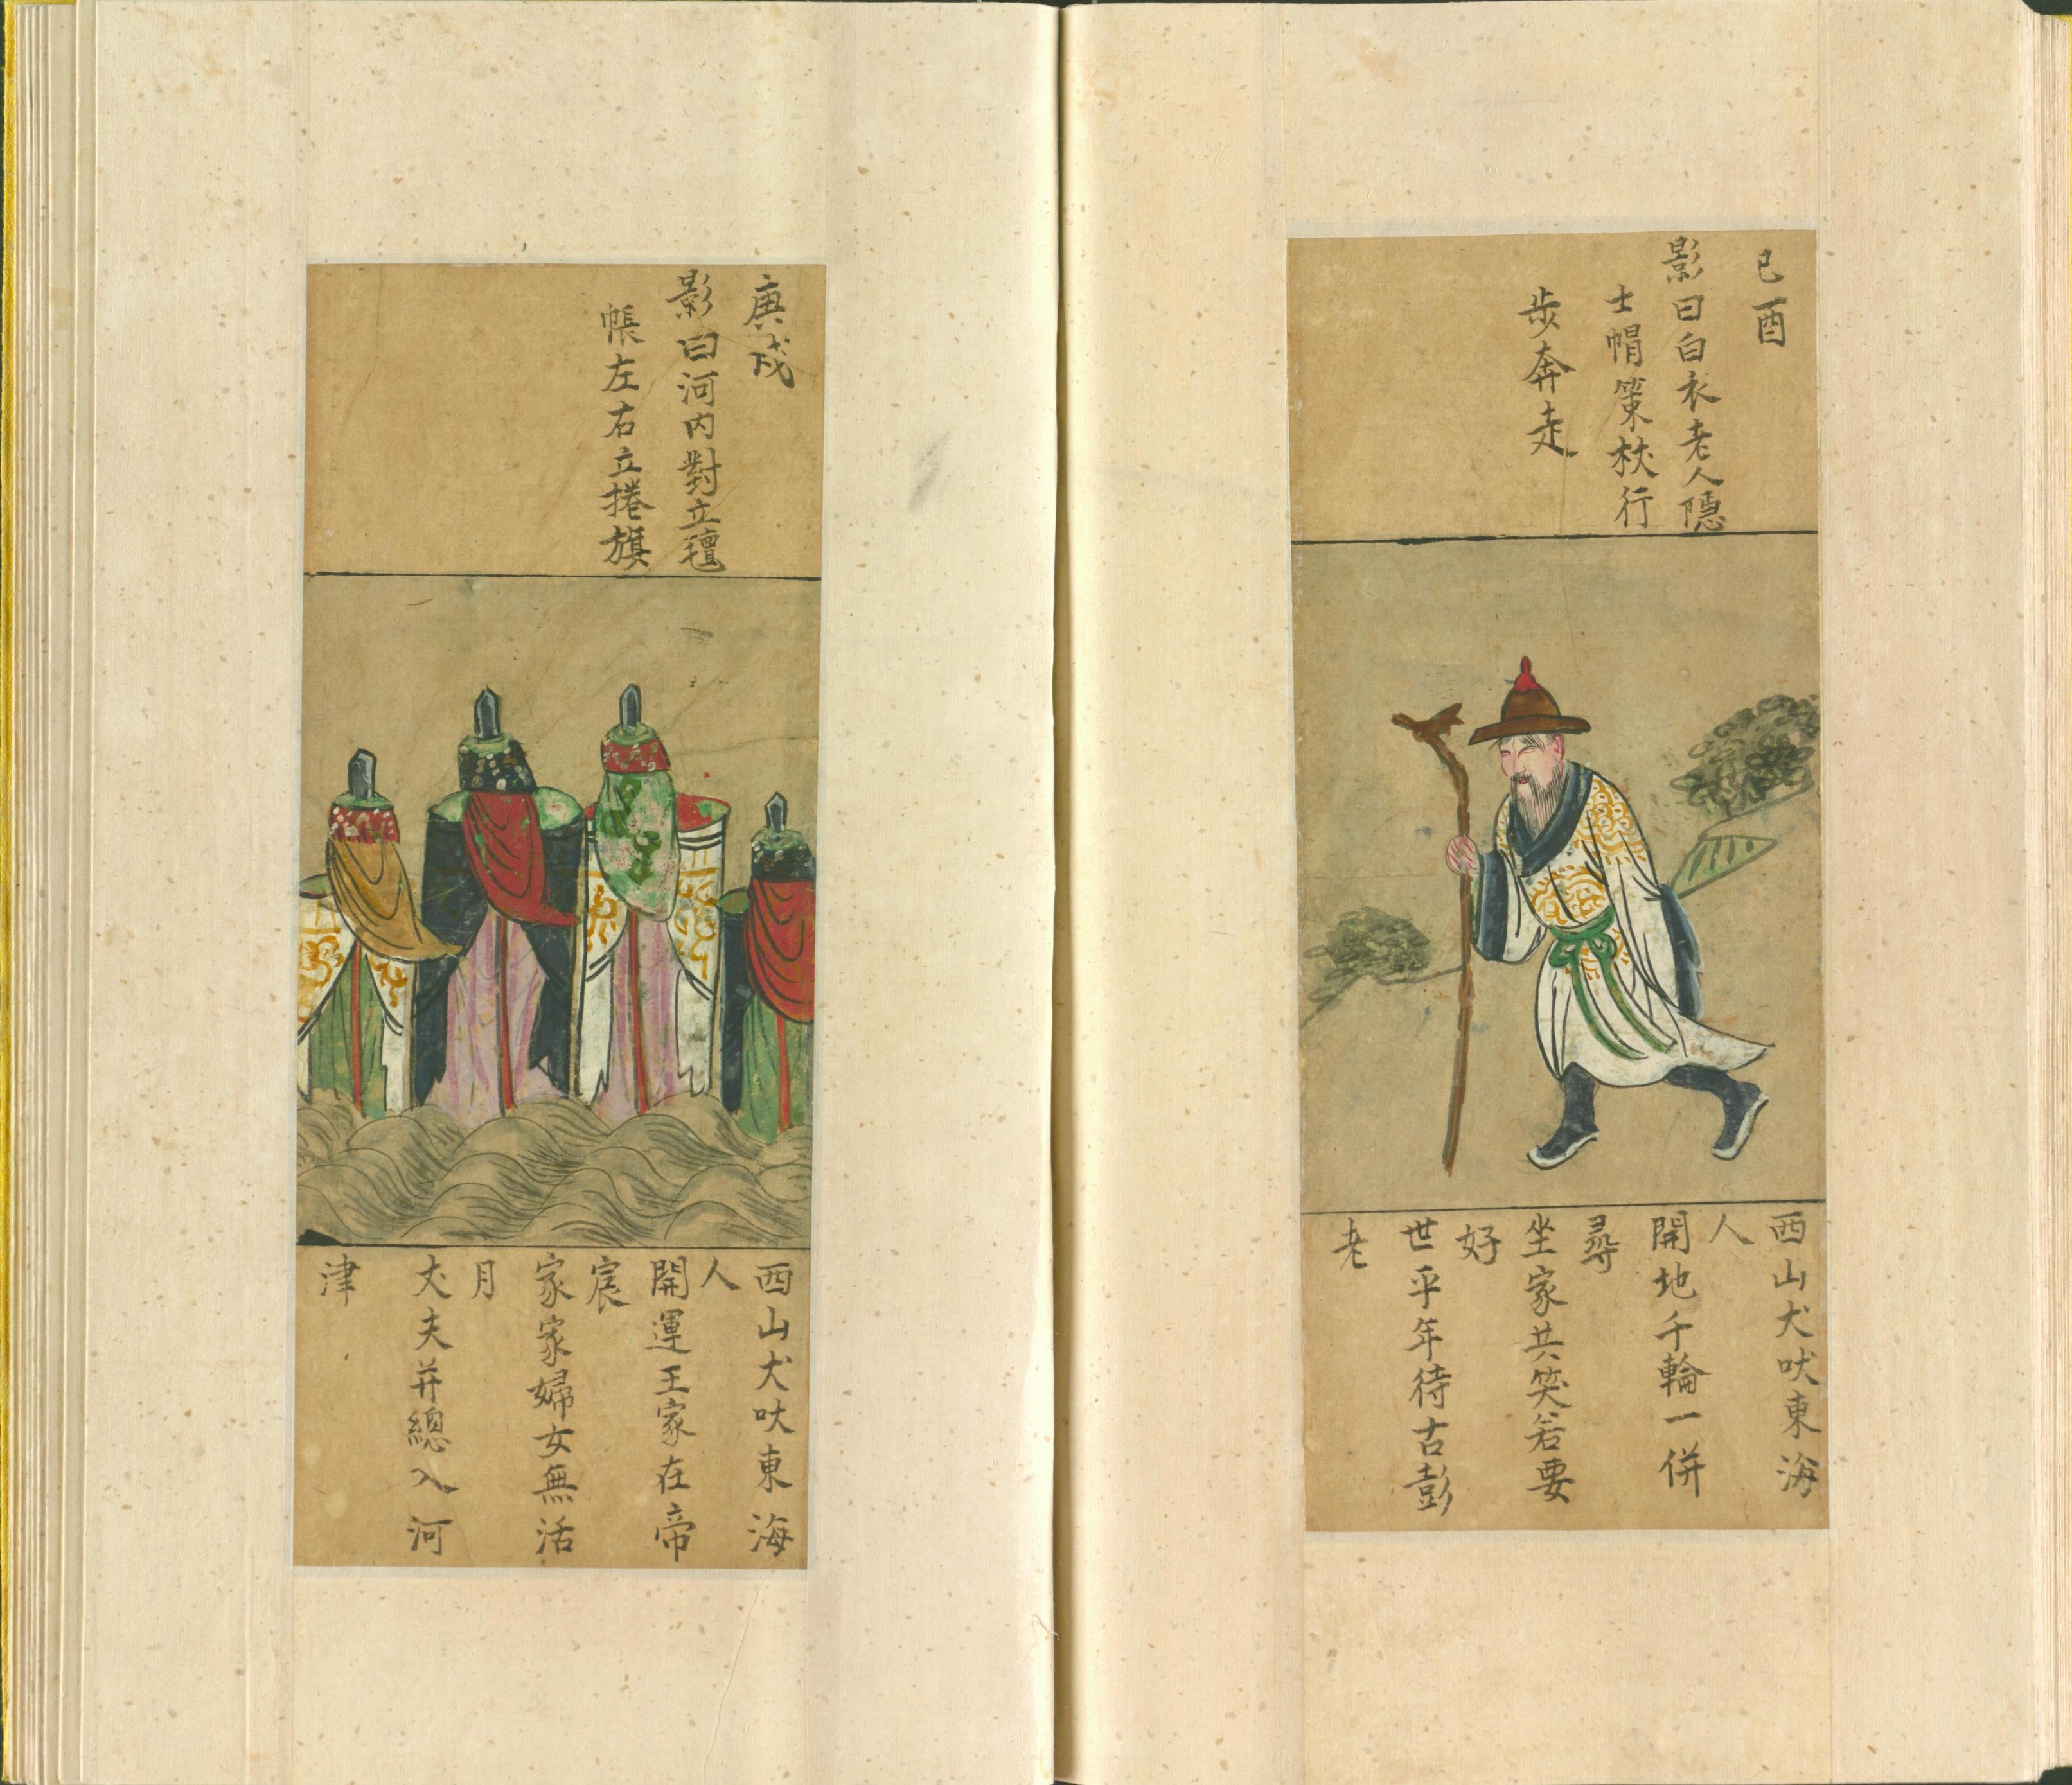 己酉
影曰白衣老人隱
士帽策杖行
步奔走
西山犬吠東海
人
開地千輪一併
尋
坐家共笑若要
好
世乎年待古彭
老
庚戌
影曰河内對立氊
帳左右立捲旗
西山犬吠東海
人
開運王家在帝
宸
家家婦女無活
月
大夫并總入河
津